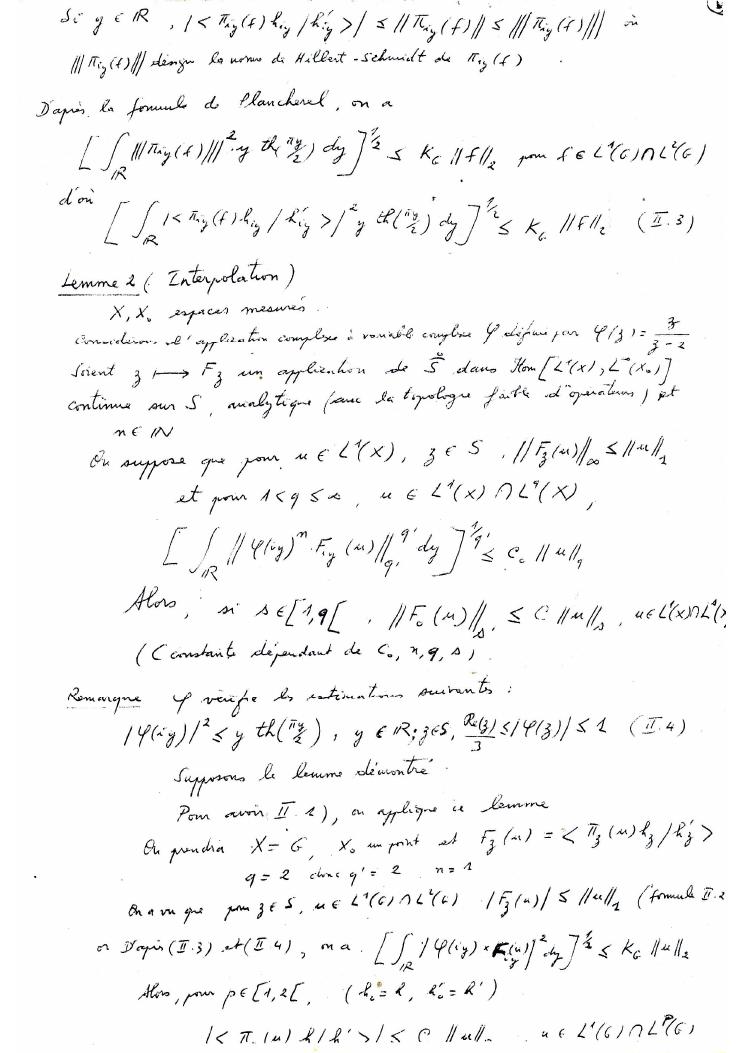 Si y ∈ ℝ, |< π_{iy}(f) h_{iy} / h'_{iy} >| ≤ ||π_{iy}(f)|| ≤ |||π_{iy}(f)||| où
|||π_{iy}(f)||| désigne la norme de Hilbert-Schmidt de π_{iy}(f).
D'après la formule de Plancherel, on a
[∫_ℝ |||π_{iy}(f)|||² y th(πy/2) dy]^{1/2} ≤ K_G ||f||_2 pour f ∈ L¹(G)∩L²(G)
d'où
[∫_ℝ |< π_{iy}(f) h_{iy} / h'_{iy} >|² y th(πy/2) dy]^{1/2} ≤ K_G ||f||_2 (II.3)
Lemme 2 (Interpolation)
X, X_0 espaces mesurés.
Considérons l'application complexe à variable complexe φ définie par φ(z) = z/(z-2)
Soient z ⟼ F_z un application de S dans Hom[L¹(X), L^∞(X_0)]
continue sur S, analytique (avec la topologie faible d'opérateurs) et
n ∈ ℕ
On suppose que pour u ∈ L¹(X), z ∈ S, ||F_z(u)||_∞ ≤ ||u||_1
et pour 1<q≤∞, u ∈ L¹(X) ∩ L^q(X),
[∫_ℝ ||φ(iy)^n · F_{iy}(u)||_{q'}^{q'} dy]^{1/q'} ≤ C_0 ||u||_q
Alors, si s ∈ [1,q[, ||F_0(u)||_{s'} ≤ C ||u||_s, u ∈ L¹(X)∩L^s(X)
(C constante dépendant de C_0, n, q, s).
Remarque φ vérifie les estimations suivantes :
|φ(iy)|² ≤ y th(πy/2), y ∈ ℝ; z∈S, Re(z)/3 ≤ |φ(z)| ≤ 1 (II.4)
Supposons le lemme démontré.
Pour avoir II.1), on applique ce lemme
On prendra X = G, X_0 un point et F_z(u) = < π_z(u) h_z / h'_z >
q = 2 donc q' = 2 n = 1
On a vu que pour z ∈ S, u ∈ L¹(G)∩L²(G) |F_z(u)| ≤ ||u||_1 (formule II.2
or D'après (II.3) et (II.4), on a [∫_ℝ |φ(iy) × F_{iy}(u)|² dy]^{1/2} ≤ K_G ||u||_2
Alors, pour p ∈ [1,2[, (h_0 = h, h'_0 = h')
|< π_0(u) h / h' >| ≤ C ||u|| u ∈ L¹(G)∩L^p(G)